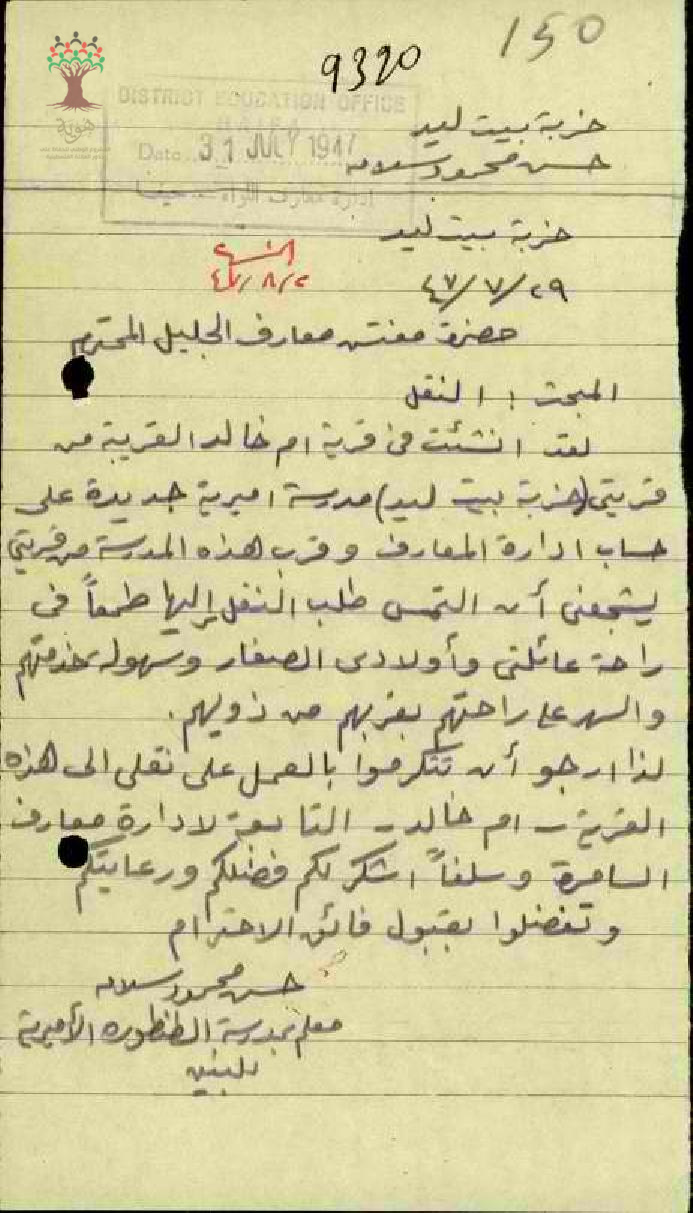 150
9320
هوية
DISTRICT EDUCATION OFFICE
HAIFA
Date 31 JULY 1947
ادارة معارف اللواء - حيفا
خربة بيت ليد
حسن محمود سلامه
خربة بيت ليد
٢٩/٧/٤٧
٢/٨/٤٧
حضرة مفتش معارف الجليل المحترم
المبحث : النقل
لقد انشئت في قرية ام خالد القريبة من
قريتي (خربة بيت ليد) مدرسة اميرية جديدة على
حساب ادارة المعارف وقرب هذه المدرسة من قريتي
يشجعني أن التمس طلب النقل إليها طمعاً في
راحة عائلتي وأولادي الصغار وسهولة خدمتهم
والسهر على راحتهم بقربهم من ذويهم .
لذا ارجو أن تتكرموا بالعمل على نقلي الى هذه
القرية - ام خالد - التابعة لادارة معارف
السامرة وسلفاً اشكر لكم فضلكم ورعايتكم
وتفضلوا بقبول فائق الاحترام
حسن محمود سلامه
معلم بمدرسة الطنطوره الأميرية
للبنين